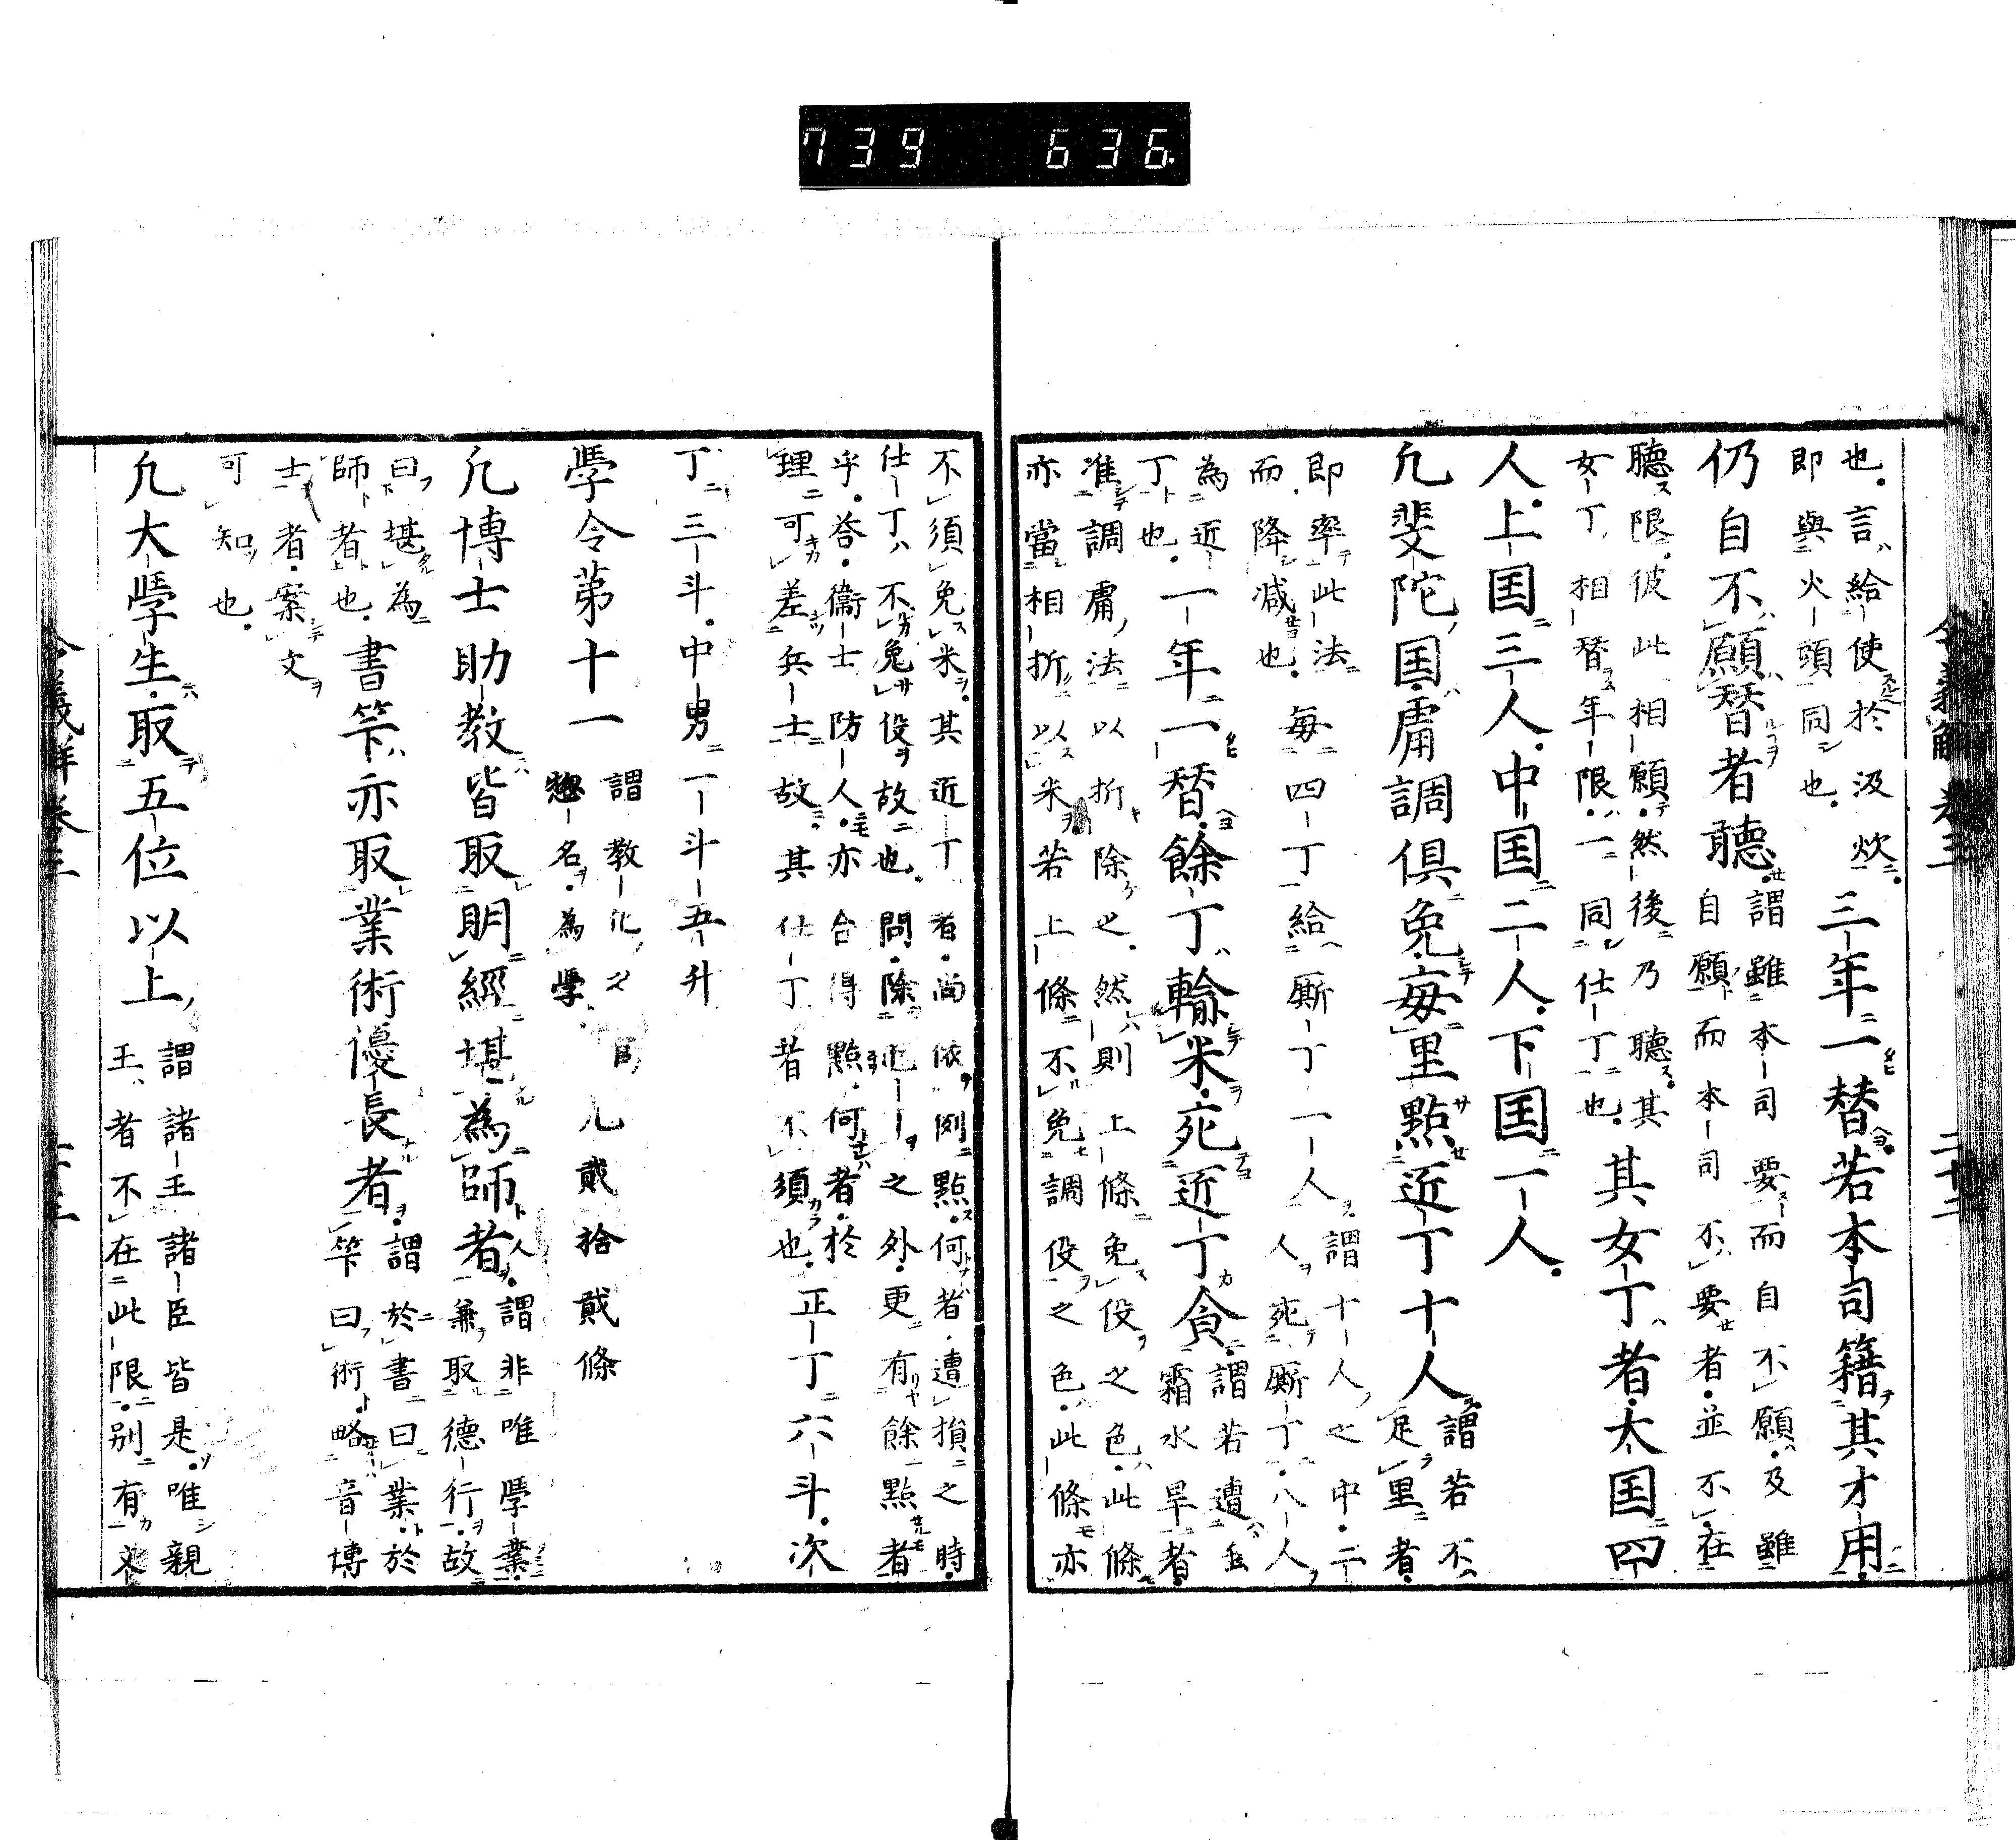 739 636.
也言給使於汲炊
即與火頭同也
三年一替若本司籍其才用
仍自不願替者聽
謂雖本司要而自不願及雖
自願而本司不要者並不在
聽限彼此相願然後乃聽其
女丁相替年限一同仕丁也
其女丁者大国四
人上国三人中国二人下国一人
凢斐陀国庸調俱免毎里點近丁十人
謂若不
足里者
即率此法
而降减也
毎四丁給厮丁一人
謂十人之中二
人死厮丁八人
為近
丁也
一年一替餘丁輸米死近丁貪
謂若遭
霜水旱者
准調庸法以折除之然則上條免伇之色此條
亦當相折以米若上條不免調伇之色此條亦
不須免米其近丁者尚依例點何者遭損之時
仕丁不免伇故也問除之外更有餘點者
乎荅衞士防人亦合得點何者於
理可差兵士故其仕丁者不須也
正丁六斗次
丁三斗中男一斗五升
學令第十一
謂教化之
惣名為學
凢貳拾貳條
凢博士助教皆取明經堪為師者
謂非唯學業
兼取德行故
曰堪為
師者也
書笇亦取業術優長者
謂於書曰業於
笇曰術略音博
士者案文
可知也
凢大學生取五位以上
謂諸王諸臣皆是唯親
王者不在此限别有文